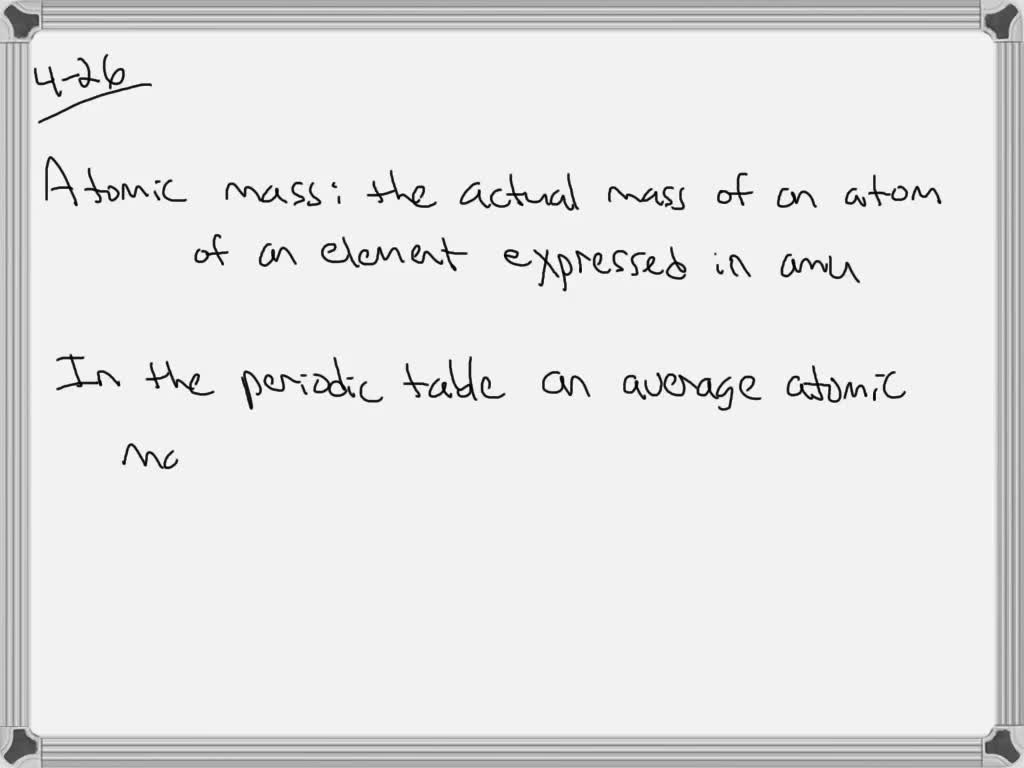 4-26
Atomic mass: the actual mass of an atom
of an element expressed in amu
In the periodic table an average atomic
ma